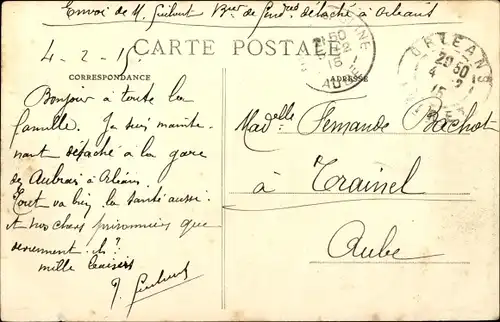 Envoi de M. Guibert Bier de Gend détaché à Orléans
4-2-15
CARTE POSTALE
CORRESPONDANCE
ADRESSE
ORLEANS
20 50
4 2
15
Bonjour à toute la
famille. Je suis mainte-
nant détaché à la gare
des Aubrais à Orléans.
va bien, la santé aussi.
et nos chers prisonniers que
deviennent-ils?
mille baisers
Guibert
Madelle Fernande Bachot
à Trainel
Aube